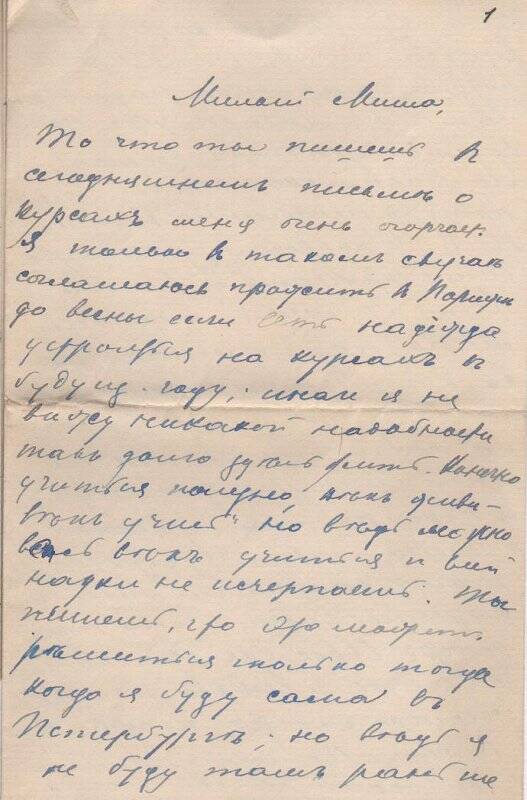 1
Милый Миша,
То что ты пишешь в
сегодняшнемъ письмѣ о
курсахъ меня очень огорчает.
Я только в такомъ случаѣ
соглашаюсь прожить в Париже
до весны если есть надежда
устроиться на курсахъ в
будущ. году; иначе я не
вижу никакой надобности
такъ долго здесь жить. Конечно
учиться полезно, векъ живи-
векъ учись" но ведь можно
весь векъ учиться и всей
науки не исчерпаешь. Ты
пишешь, что это может
решиться только тогда
когда я буду сама въ
Петербургѣ; но ведь я
не буду тамъ раньше